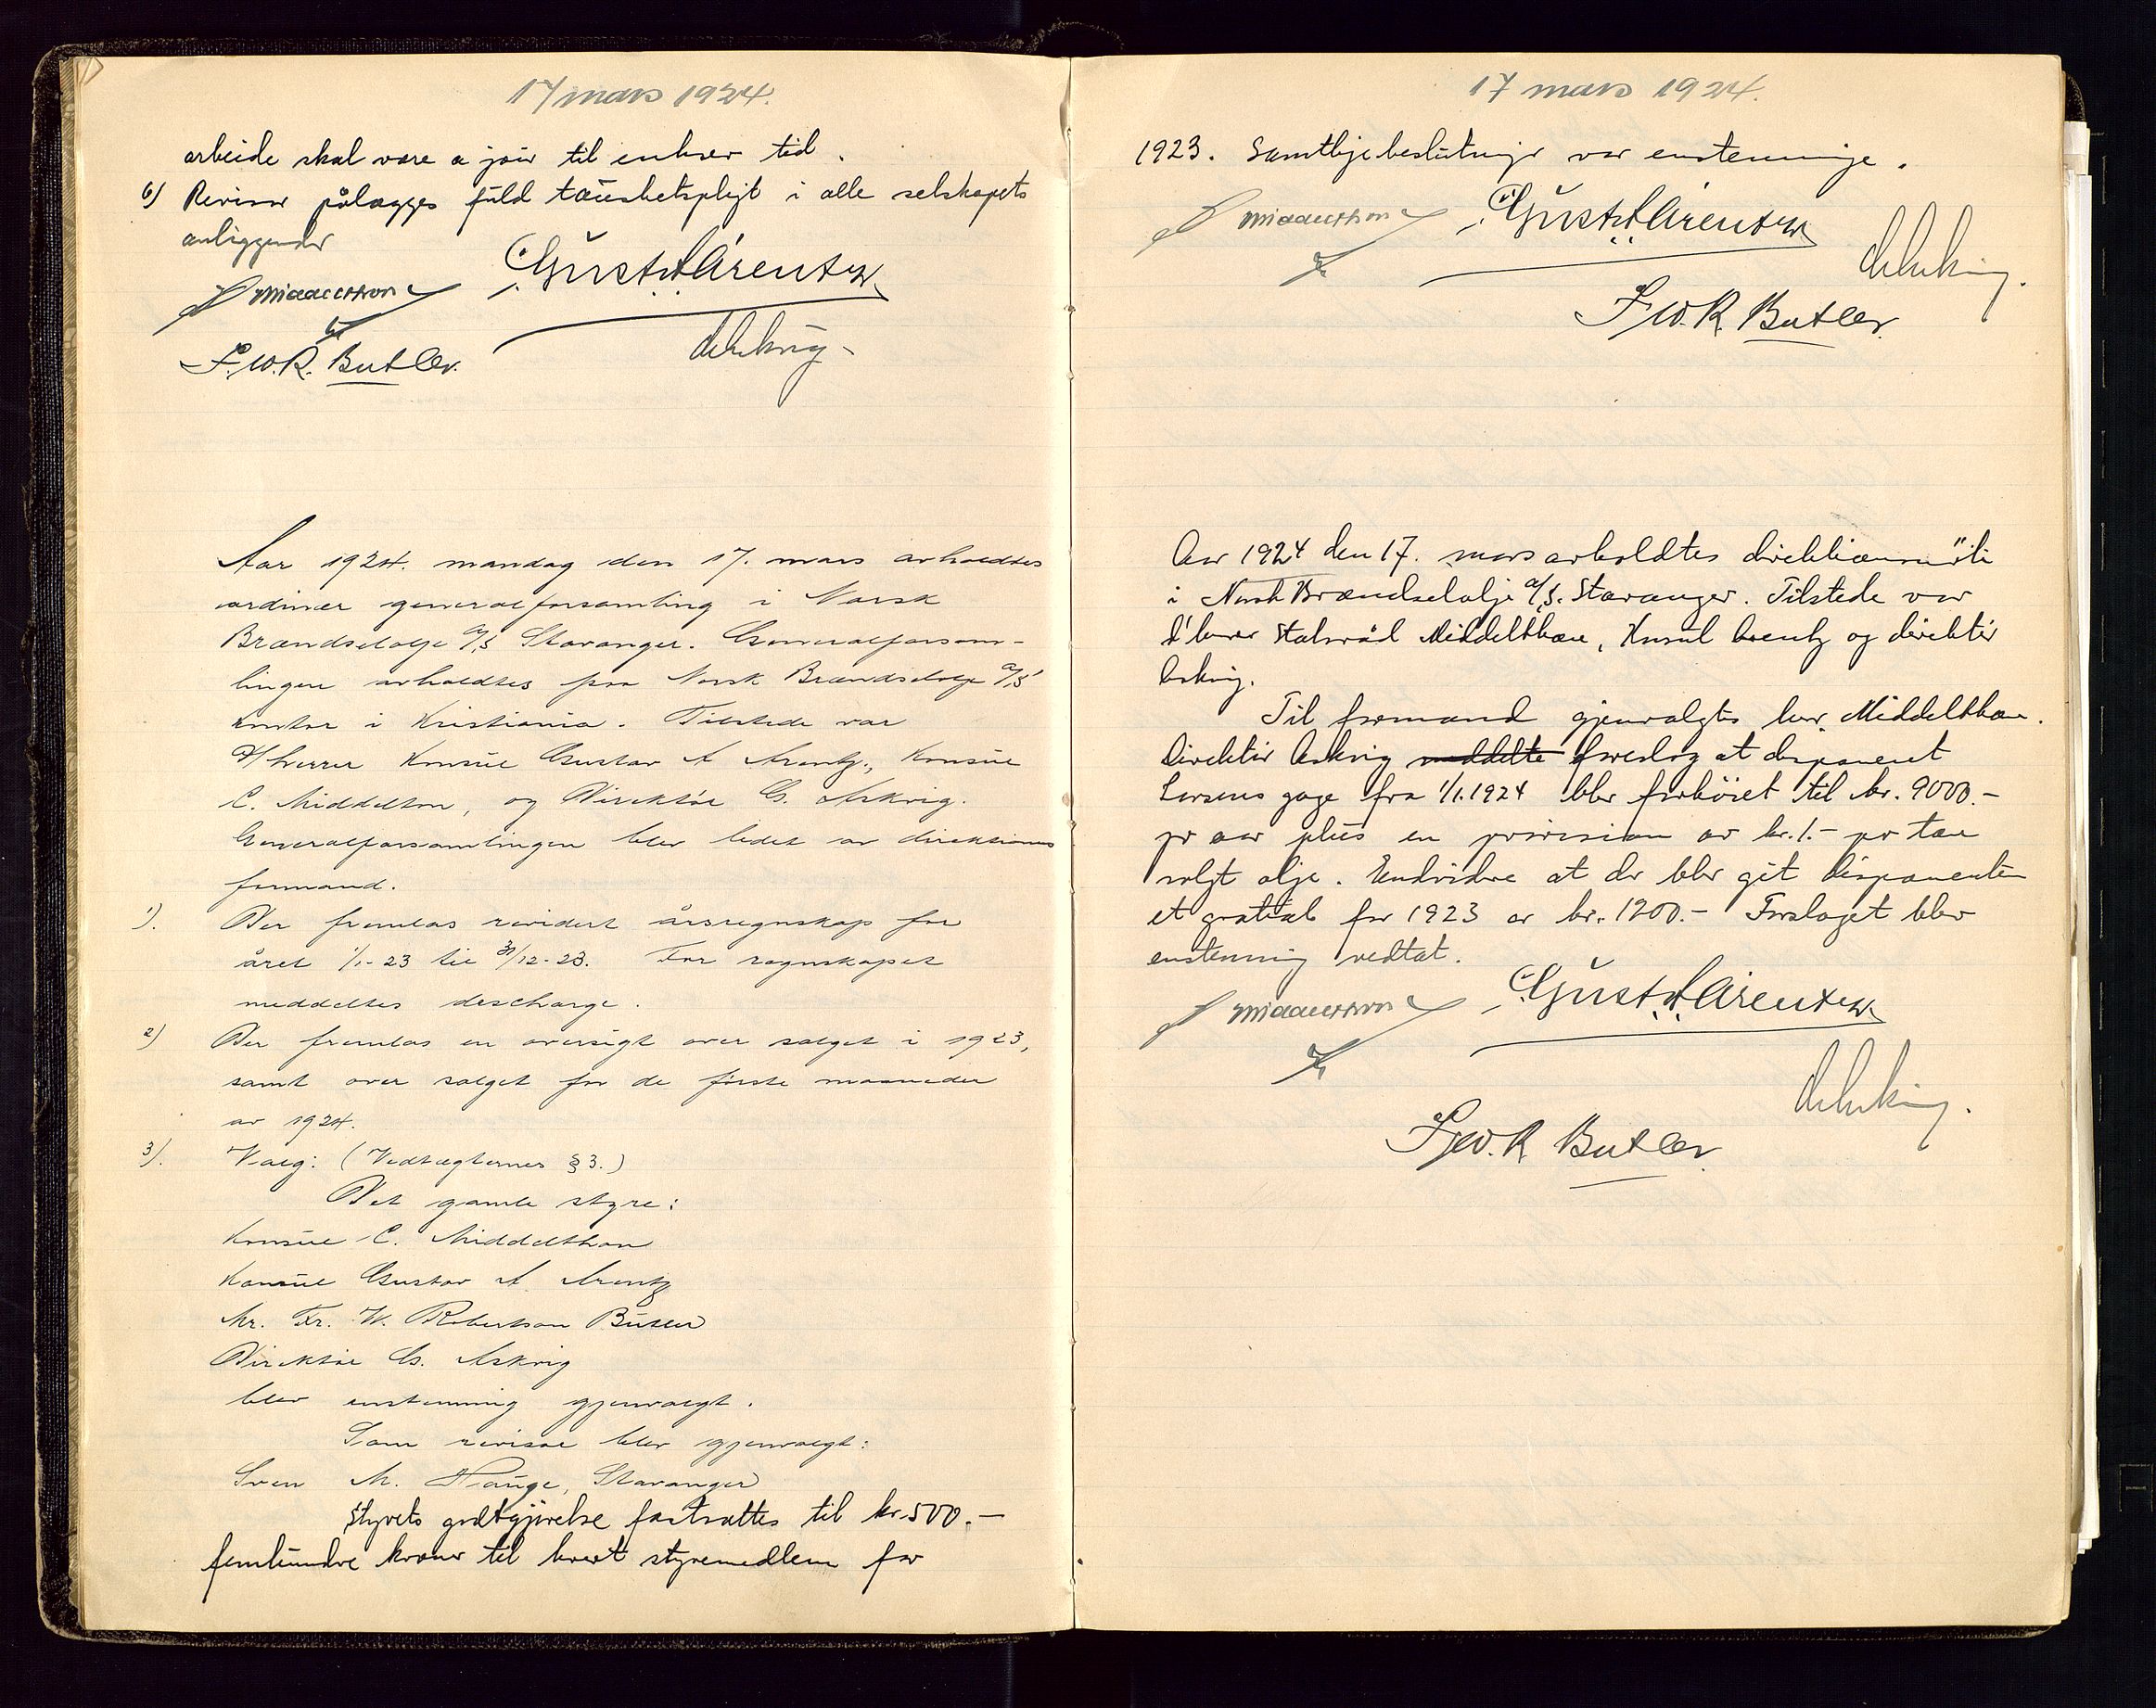 17 mars 1924.
arbeide skal være a jour til enhver tid.
6) Revisor pålægges fuld taushetspligt i alle selskapets
anliggender
C Middelthon
Gust. A Arentz
F.W.R. Butler.
Askvig
Aar 1924. mandag den 17. mars avholdtes
ordinær generalforsamling i Norsk
Brændselolje A/S Stavanger. Generalforsam-
lingen avholdtes paa Norsk Brændselolje A/S'
kontor i Kristiania. Tilstede var
Hherrer Konsul Gustav A Arentz., Konsul
C. Middelton, og Direktør G. Askvig.
Generalforsamlingen blev ledet av direktionens
formand.
1). Der fremlas revidert årsregnskap for
året 1/1-23 til 31/12-23. For regnskapet
meddeltes descharge.
2) Der fremlas en oversigt over salget i 1923,
samt over salget for de første maaneder
av 1924.
3). Valg: (Vedtægternes § 3.)
Det gamle styre:
Konsul C. Middelthon
Konsul Gustav A Arentz
Mr. Fr. W. Robertson Butler
Direktør G. Askvig
blev enstemmig gjenvalgt.
Som revisor blev gjenvalgt:
Sven M. Hauge, Stavanger
Styrets godtgjørelse fastsattes til kr. 500.-
femhundre kroner til hvert styremedlem for
17 mars 1924.
1923. Samtlige beslutninger var enstemmige.
C Middelthon
Gust. A Arentz
Askvig.
F.W.R. Butler.
Aar 1924 den 17. mars avholdtes direktionsmøte
i Norsk Brændselolje A/S. Stavanger. Tilstede var
d'herrer Statsråd Middelthon, Konsul Arentz og direktør
Askvig.
Til formand gjenvalgtes herr Middelthon.
Direktør Askvig meddelte foreslog at disponent
Larsens gage fra 1/1.1924 blev forhöiet til kr. 9000.-
pr aar plus en provision av kr. 1.- pr ton
solgt olje. Endvidere at der blev git disponenten
et gratial for 1923 av kr. 1200.- Forslaget blev
enstemmig vedtat.
C Middelthon
Gust. A Arentz
Askvig.
F.W.R Butler